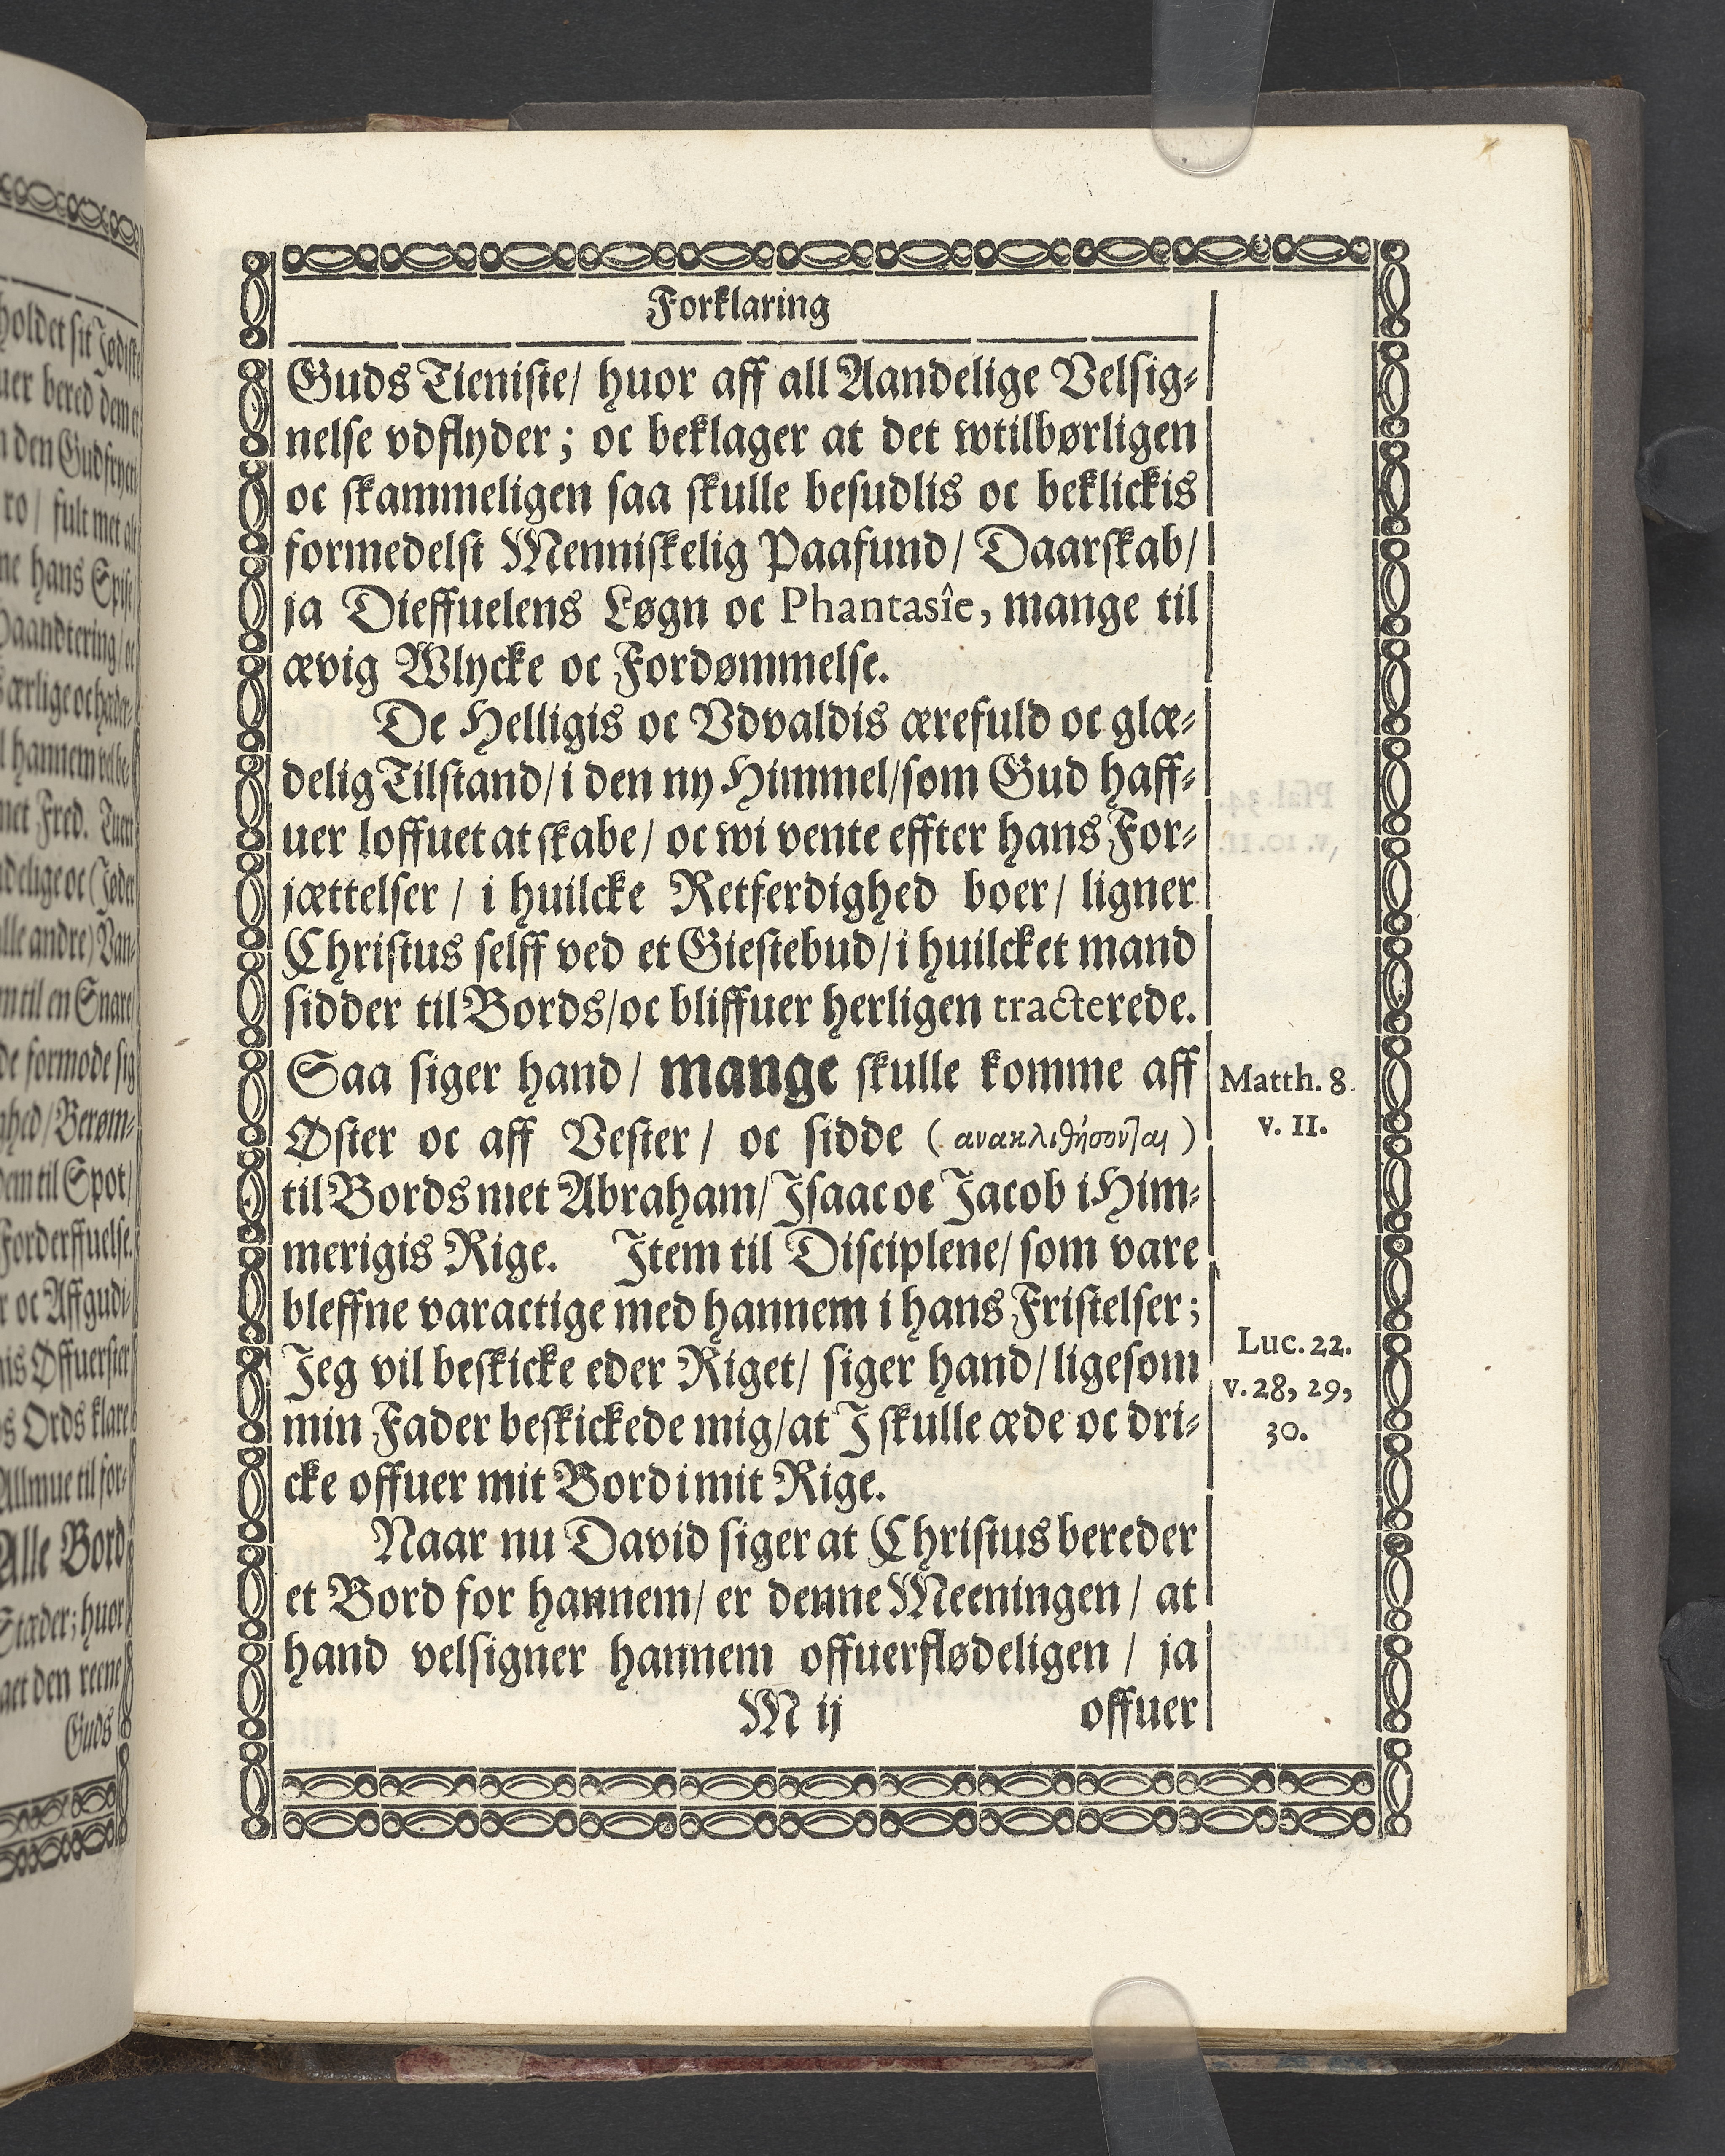 Forklaring
Guds Tieniste/ huor aff all Aandelige Velsig-
nelse vdflyder; oc beklager at det wtilbørligen
oc skammeligen saa skulle besudlis oc beklickis
formedelst Menniskelig Paafund/ Daarskab/
ja Dieffuelens Løgn oc Phantasîe, mange til
ævig Wlycke oc Fordømmelse.
De Helligis oc Vdvaldis ærefuld oc glæ-
delig Tilstand/ i den ny Himmel/ som Gud haff-
uer loffuet at skabe/ oc wi vente effter hans For-
jættelser / i huilcke Retferdighed boer/ ligner
Christus selff ved et Giestebud/ i huilcket mand
sidder til Bords/ oc bliffuer herligen tracterede.
Saa siger hand/ mange skulle komme aff
Øster oc aff Vester/ oc sidde (ανακλιθήσονται)
til Bords met Abraham/ Isaac oc Jacob i Him-
merigis Rige. Item til Disciplene/ som vare
bleffne varactige med hannem i hans Fristelser;
Jeg vil beskicke eder Riget/ siger hand/ ligesom
min Fader beskickede mig/ at I skulle æde oc dri-
cke offuer mit Bord i mit Rige.
Naar nu David siger at Christus bereder
et Bord for hannem/ er denne Meeningen / at
hand velsigner hannem offuerflødeligen / ja
M ij offuer
Matth. 8.
v. 11.
Luc. 22.
v. 28, 29,
30.